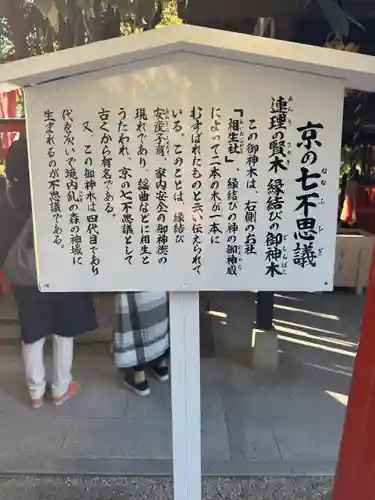 京の七不思議
きょう ななふしぎ
連理の賢木 縁結びの御神木
れんり さかき えんむす ごしんぼく
この御神木は、右側のお社
「相生社」縁結びの神の御神威
によって二本の木が一本に
むすばれたものと言い伝えられて
いる。このことは、縁結び
安産子育、家内安全の御神徳の
現れであり、謡曲などに相生と
うたわれ、京の七不思議として
古くから有名である。
又、この御神木は四代目であり
代を次いで境内糺の森の神域に
生まれるのが不思議である。